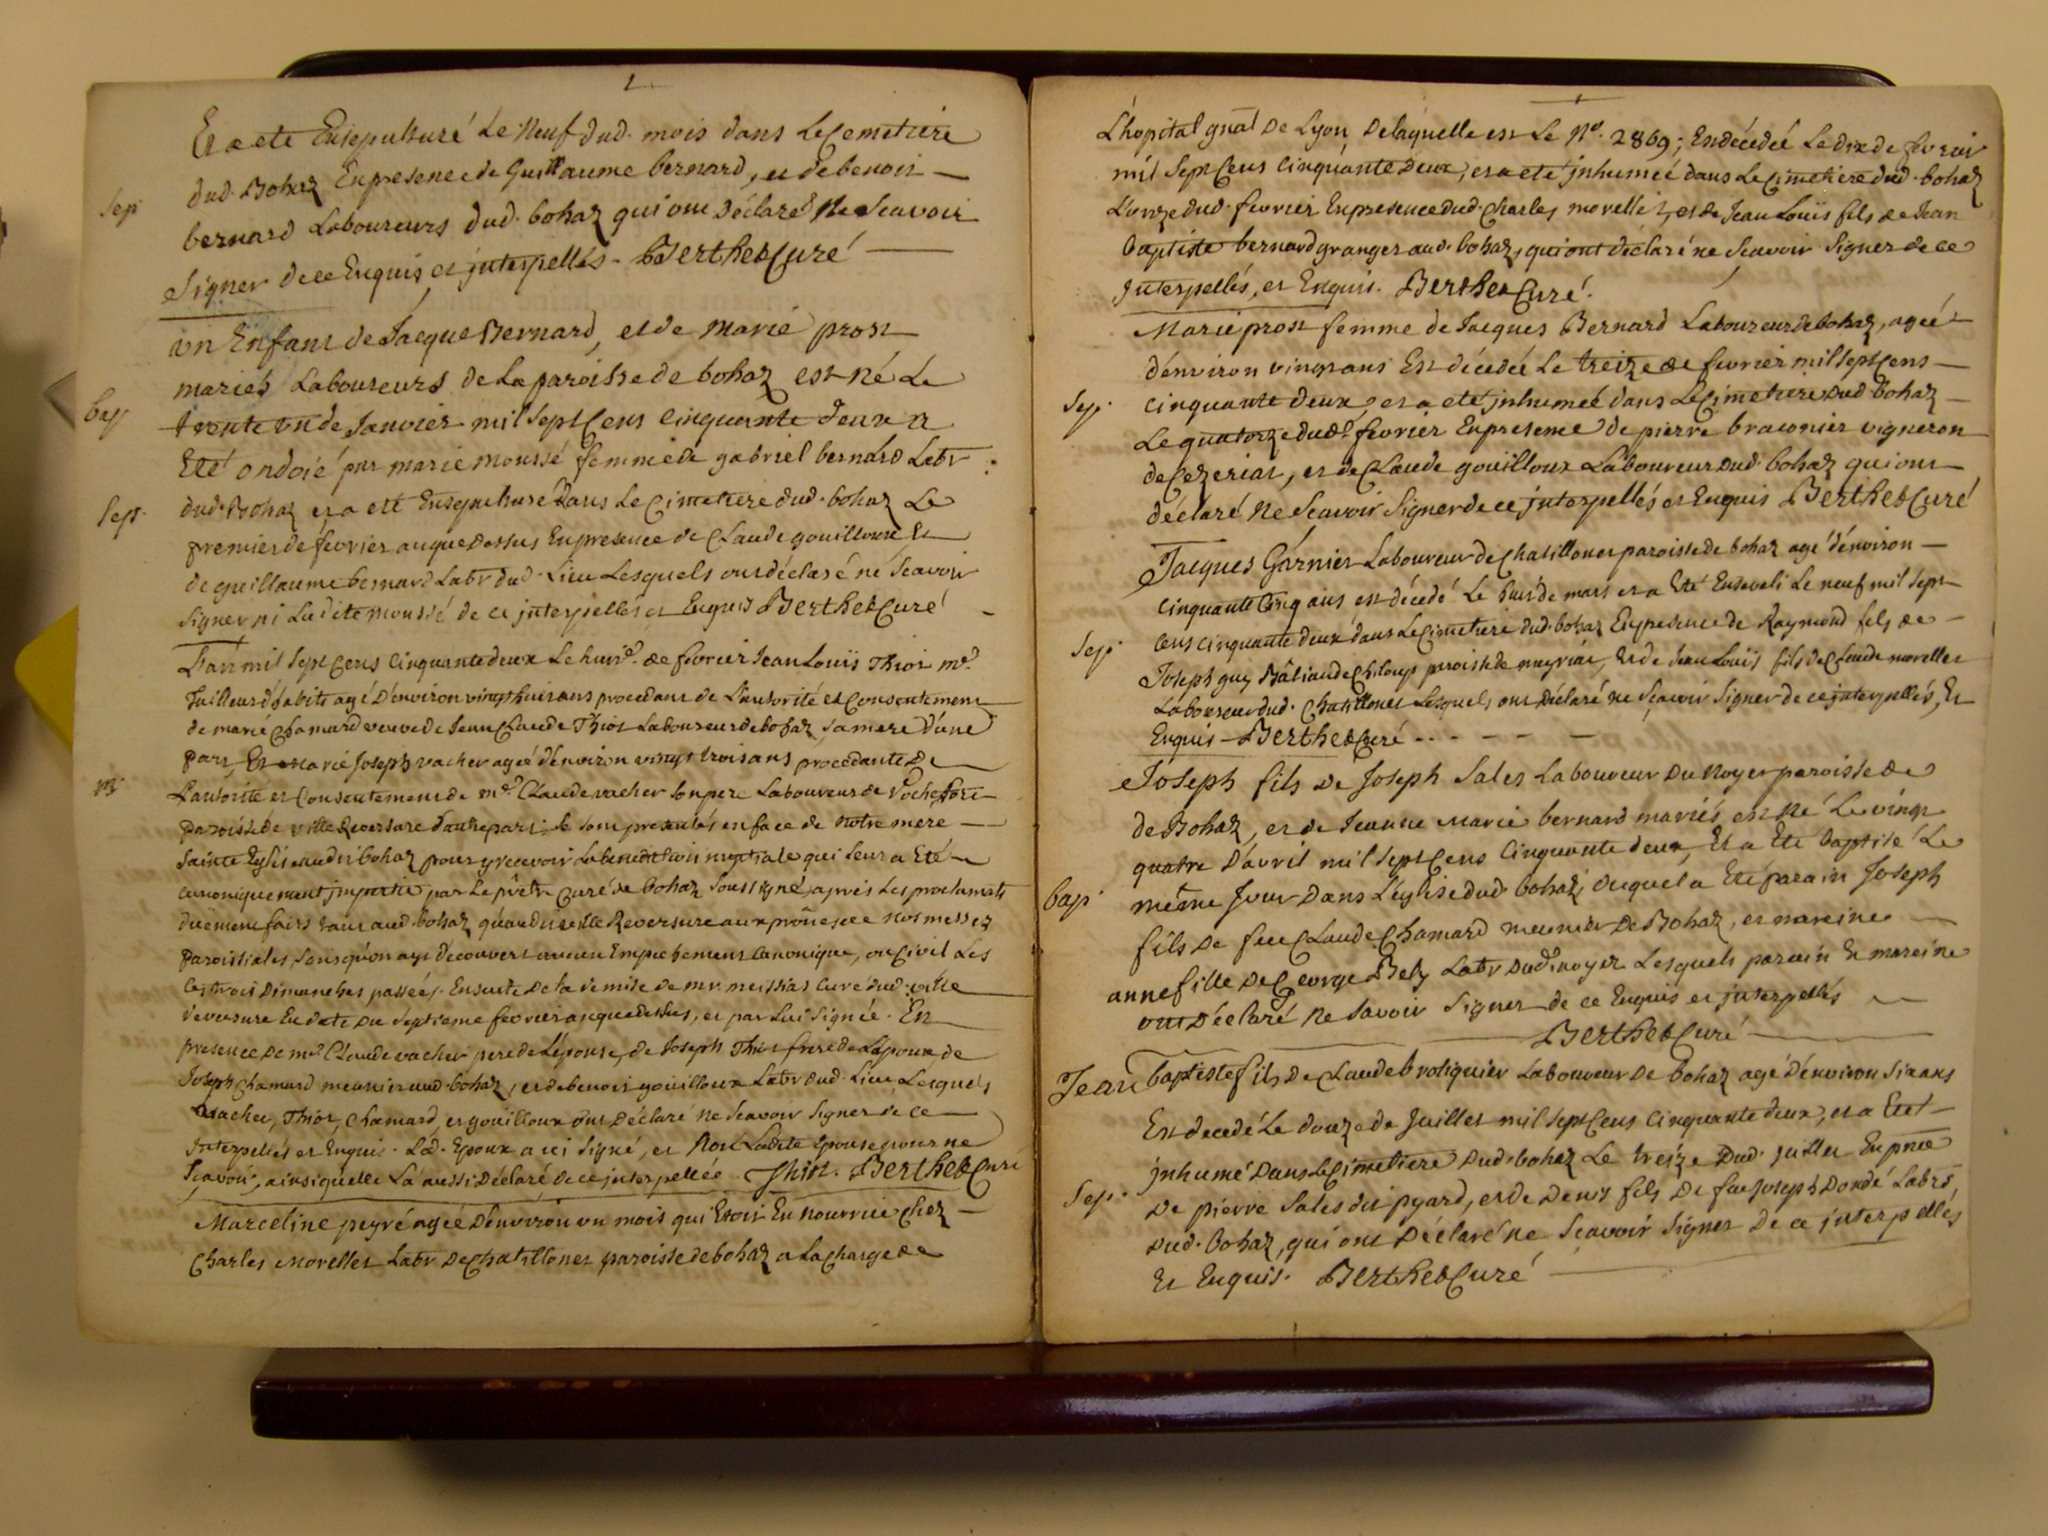 Et a ete Ensepulturé Le Neuf dud. mois dans Le Cemetiere
Sep. dud. Bohaz En presence de Guillaume bernard, et de benoit
bernard Laboureurs dud. bohaz qui ont déclaré Ne Scavoir
Signer de ce Enquis et interpellés. Berthet Curé
un Enfant de Jacque Bernard, et de Marie prost
mariés Laboureurs de La paroisse de bohaz est Né Le
bap trente un de Janvier mil Sept Cens Cinquante deux a
Eté ondoié par marie moussé femme de gabriel bernard Labr
Sept. dud. Bohaz et a eté Ensepulturé dans Le Cimetiere dud. bohaz Le
premier de fevrier an que dessus En presence de Claude gouilloux Et
de guillaume bernard Labr dud. Lieu Lesquels ont déclaré ne Scavoir
Signer ni Ladite moussé de ce interpellés et Enquis Berthet Curé
L'an mil Sept Cens Cinquante deux Le huit de fevrier Jean Louis Thiot me.
Tailleur d'habits agé d'environ vingt huit ans procedant de L'autorité et Consentement
de marie Chamard veuve de Jean Claude Thiot Laboureur de bohaz, Sa mere d'une
part, Et Marie Joseph vacher ageé d'environ vingt trois ans procedante de
m. L'autorité et Consentement de me. Claude vacher Son pere Laboureur de Rochefort
paroisse de ville Reversure d'autre part; se sont presentés en face de notre mere
Sainte Eglise audit bohaz pour y recevoir La benediction nuptiale qui leur a Eté
canoniquement impartie par Le prêtre Curé de bohaz Soussigné, après Les proclamats
duement faits tant aud. bohaz qu'audit ville Reversure aux prônes de nos messes
paroissiales, Sans qu'on aye decouvert aucun Empechement Canonique, ou Civil Les
Les trois Dimanches passés. Ensuite de la remise de mr. meissias Curé dud. ville
reversure En date du Septieme fevrier an que dessus, et par Lui Signée. En
presence de me. Claude vacher pere de L'épouse, de Joseph Thiot frere de L'époux de
Joseph Chamard meunier aud. bohaz, et de benoit gouilloux Labr dud. Lieu Lesquels
vacher, Thiot, Chamard, et gouilloux ont déclaré ne Scavoir Signer de ce
Interpellés et Enquis. Led. Epoux a ici Signé, et Non Ladite épouse pour ne
Sçavoir, ainsi qu'elle L'a aussi déclaré de ce interpellée Thiot. Berthet Curé
Marceline peyré ageé d'environ un mois qui Etoit En nourrice chez
Charles Morellet Labr de Chatillonet paroisse de bohaz a La Charge de
L'hopital gnal de Lyon de laquelle est Le No. 2869; En décédeé Le dix de fevrier
mil Sept Cens Cinquante deux, et a eté inhumeé dans Le Cimetiere dud. bohaz
L'onze dud. fevrier En presence dud. Charles morellet, et de Jean Louis fils de Jean
baptiste bernard granger aud. bohaz, qui ont déclaré ne Scavoir Signer de ce
Interpellés, et Enquis. Berthet Curé.
Marie prost femme de Jacques Bernard Laboureur de bohaz, ageé
d'environ vingt ans Est décedeé Le treize de fevrier mil Sept Cens
Sep. Cinquante deux, et a eté inhumeé dans Le Cimetiere dud. bohaz
Le quatorze dud. fevrier En presence de pierre braconier vigneron
de Cezeriat, et de Claude gouilloux Laboureur dud. bohaz qui ont
déclaré Ne Scavoir Signer de ce interpellés et Enquis Berthet Curé
Jacques Garnier Laboureur de Chatillonet paroisse de bohaz agé d'environ
Cinquante Cinq ans est décedé Le huit de mars et a Eté Enseveli Le neuf mil Sept
Sep. Cens cinquante deux dans Le Cimetiere dud. bohaz En presence de Raymond fils de
Joseph guy paroisse de meyriat, Et de Jean Louis fils de Claude morellet
Laboureur dud. Chatillonet Lesquels ont déclaré ne Sçavoir Signer de ce interpellés, Et
Enquis - Berthet Curé
Joseph fils de Joseph Sales Laboureur du Noyer paroisse de
de Bohaz, et de Jeanne Marie bernard mariés est Né Le vingt
quatre d'avril mil Sept Cens Cinquante deux, Et a Eté baptisé Le
bap. même Jour dans L'eglise dud. bohaz, duquel a Eté parain Joseph
fils de feu Claude Chamard meunier de Bohaz, et mareine
anne fille de George Bely Labr dud. noyer Lesquels parain Et mareine
ont déclaré Ne Savoir Signer de ce Enquis et interpellés
Berthet Curé
Jean baptiste fils de Claude brotiquier Laboureur de bohaz agé d'environ Six ans
Est decedé Le douze de Juillet mil Sept Cens Cinquante deux, et a Eté
inhumé dans Le Cimetiere dud. bohaz Le treize dud. juillet En pnce
Sep. de pierre Sales dit pyard, et de denis fils de feu Joseph Dondé Labrs
dud. bohaz, qui ont déclaré ne Sçavoir Signer de ce interpellés
Et Enquis. Berthet Curé